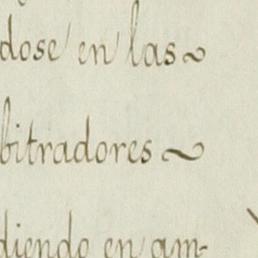 dose en las~
bitradores~
diendo en am-